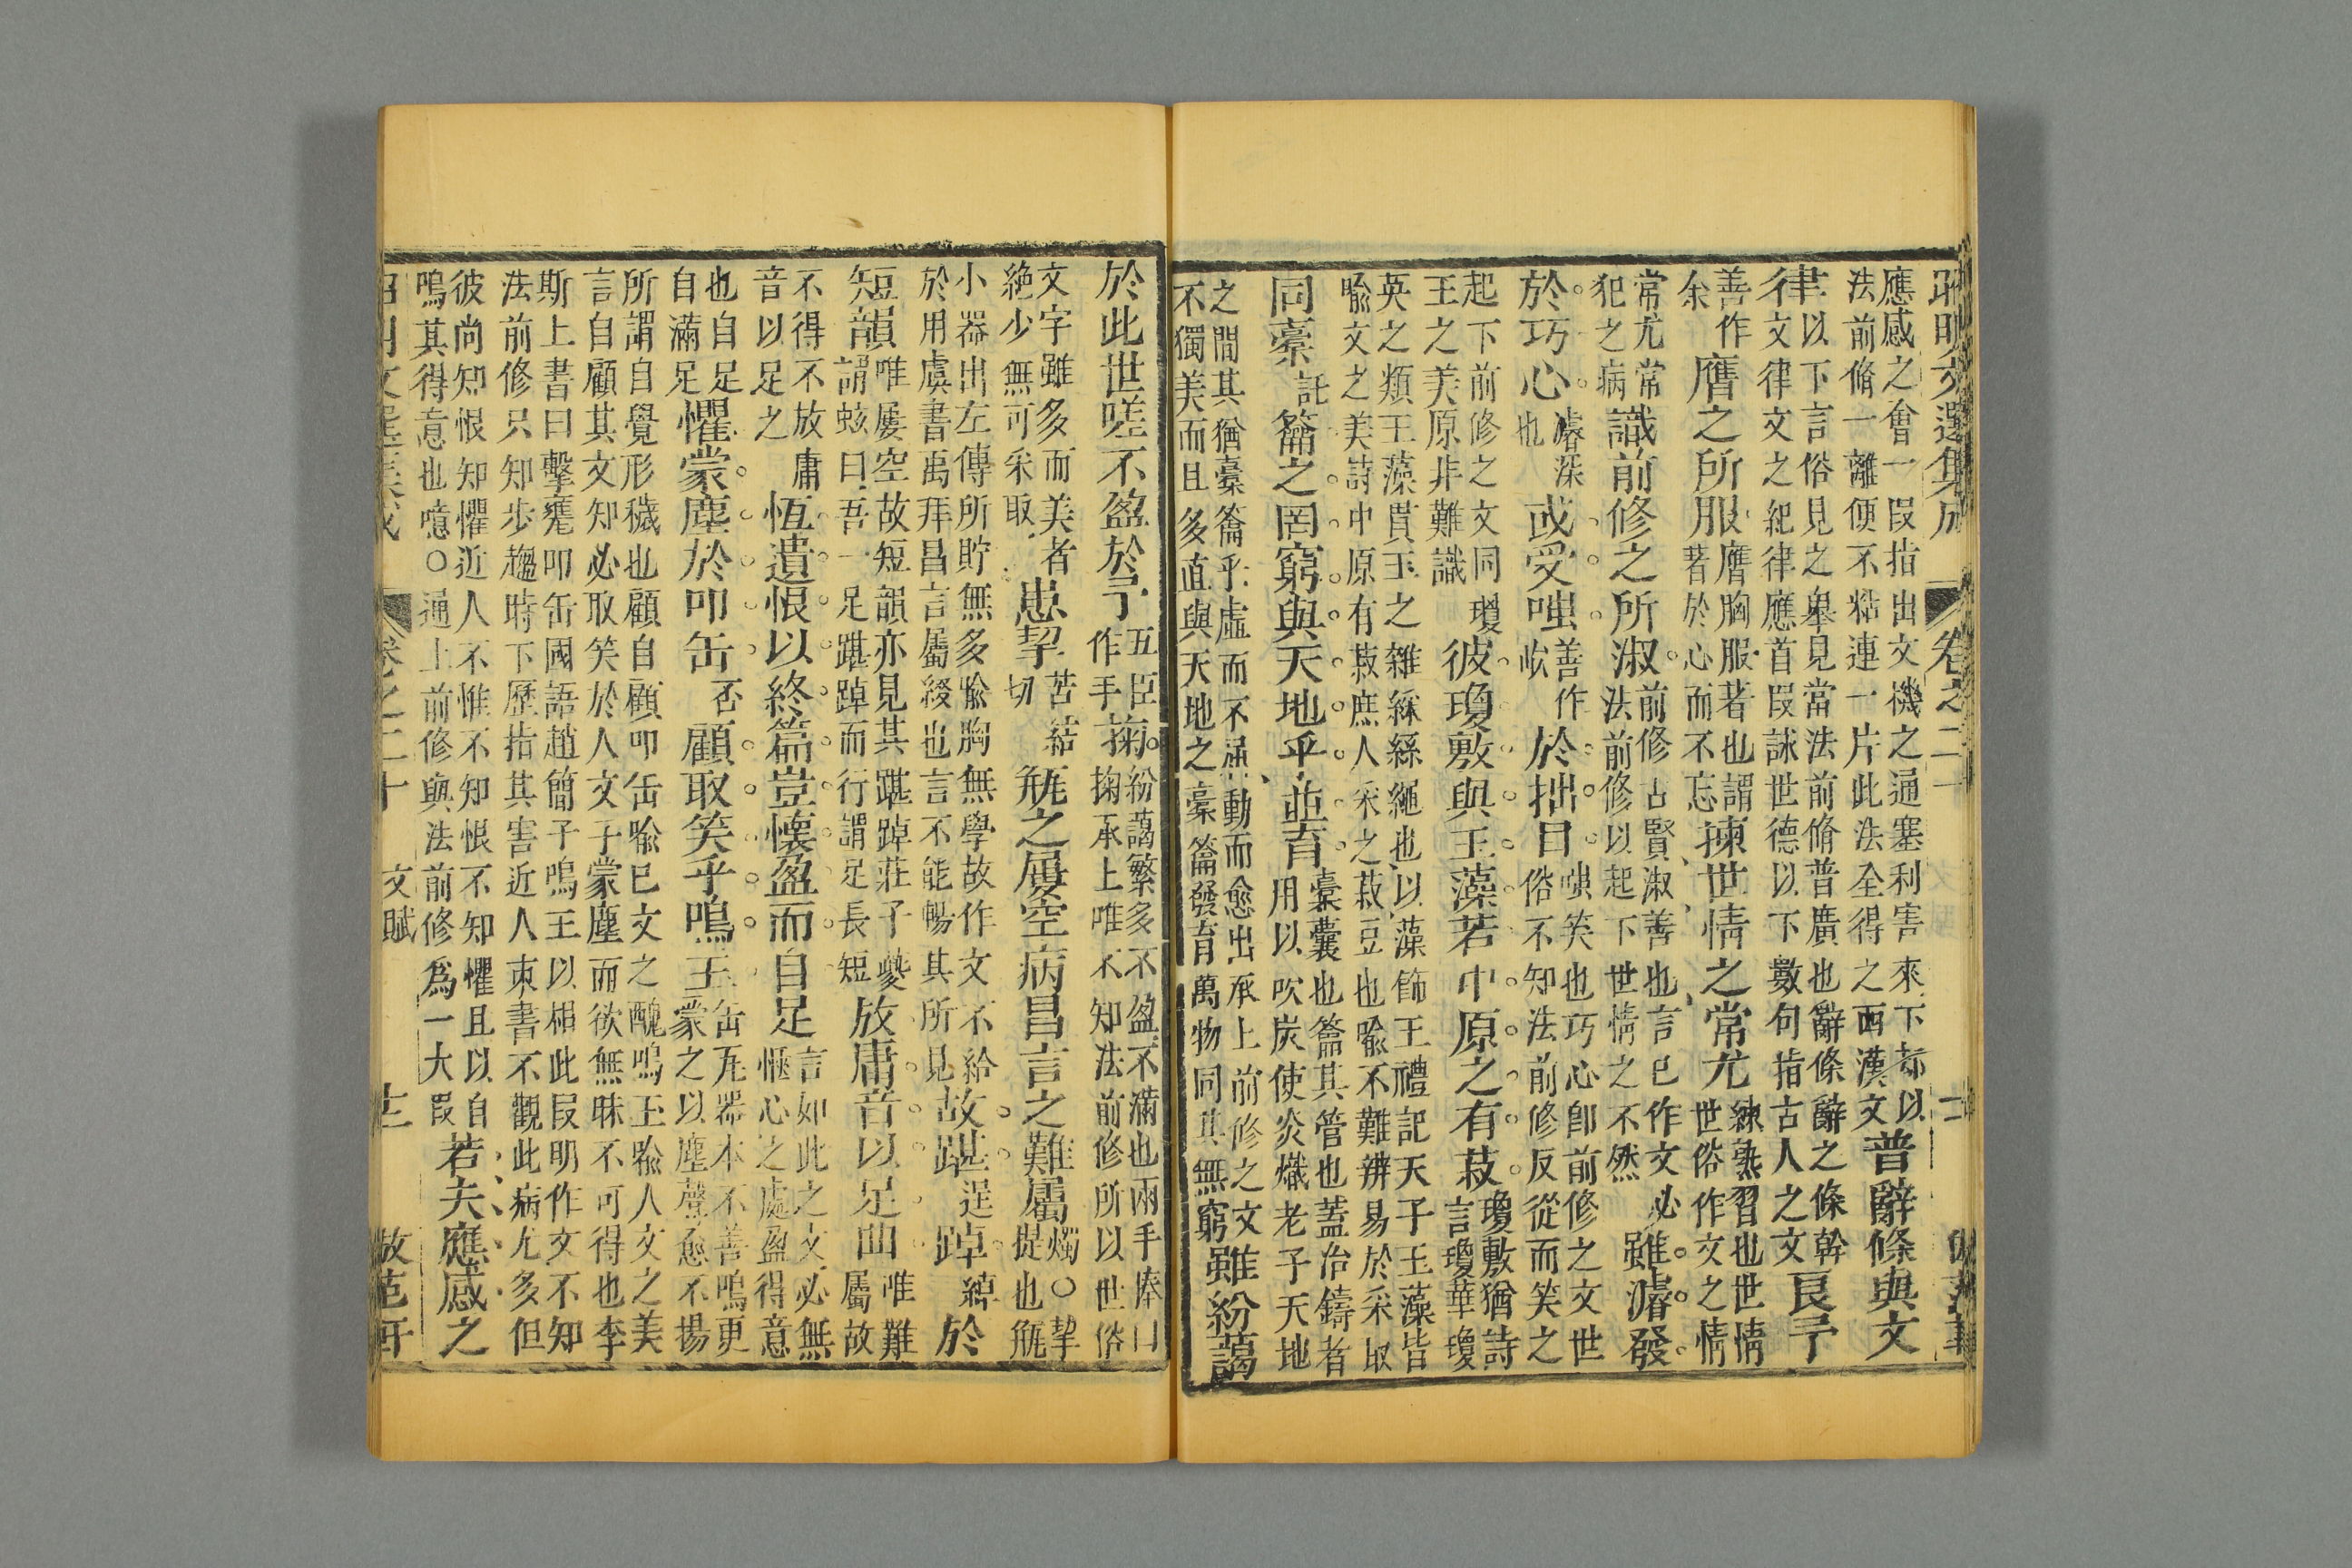 應感之會一段指出文機之通塞利害來下都以
法前脩一離便不粘連一片此法全得之西漢文
普辭條與文
律
以下言俗見之舉見當法前脩普廣也辭條辭之條幹
文律文之紀律應首段詠世德以下數句指古人之文
良予
善作
余
膺之所服
膺胸服著也謂
著於心而不忘
揀世情之常尤
練熟習也世情
世俗作文之情
常尤常
犯之病
識前修之所淑
前修古賢淑善也言已作文必
法前修以起下世情之不然
雖濬發
於巧心
濬深
也
或受嗤
善作
㰞
於拙目
嗤笑也巧心卽前修之文世
俗不知法前修反從而笑之
起下前修之文同瓊
玉之美原非難識
彼瓊敷與玉藻若中原之有菽
瓊敷猶詩
言瓊華瓊
英之類玉藻貫玉之雜綵絲繩也以藻飾玉禮記天子玉藻皆
喻文之美詩中原有菽庶人采之菽豆也喻不難辨易於采取
同橐
託
籥之罔窮與天地乎並育
橐囊也籥其管也蓋冶鑄者
用以吹炭使炎熾老子天地
之間其猶橐籥乎虛而不屈動而愈出承上前修之文
不獨美而且多直與天地之橐籥發育萬物同其無窮
雖紛藹
於此世嗟不盈於予
五臣
作手
掬
紛藹繁多不盈不滿也兩手捧曰
掬承上唯不知法前修所以世俗
文字雖多而美者
絶少無可采取
患挈
苦結
切
瓶之屢空病昌言之難屬
燭〇挈
提也瓶
小器出左傳所貯無多喻胸無學故作文不給
於用虞書禹拜昌言屬綴也言不能暢其所見
故踸
逞
踔
綽
於
短韻
唯屢空故短韻亦見其踸踔莊子夔
謂蚿曰吾一足踸踔而行謂足長短
放庸音以足曲
唯難
屬故
不得不放庸
音以足之
恆遺恨以終篇豈懷盈而自足
言如此之文必無
愜心之處盈得意
也自足
自滿足
懼蒙塵於叩缶
否
顧取笑乎鳴玉
缶瓦器本不善鳴更
蒙之以塵聲愈不揚
所謂自覺形穢也顧自顧叩缶喻已文之醜鳴玉喻人文之美
言自顧其文知必取笑於人文子蒙塵而欲無昧不可得也李
斯上書曰擊甕叩缶國語趙簡子鳴玉以相此段明作文不知
法前修只知步趨時下歷指其害近人束書不觀此病尤多但
彼尚知恨知懼近人不惟不知恨不知懼且以自
鳴其得意也噫〇通上前修與法前修爲一大段
若夫應感之
卷之二十 文賦